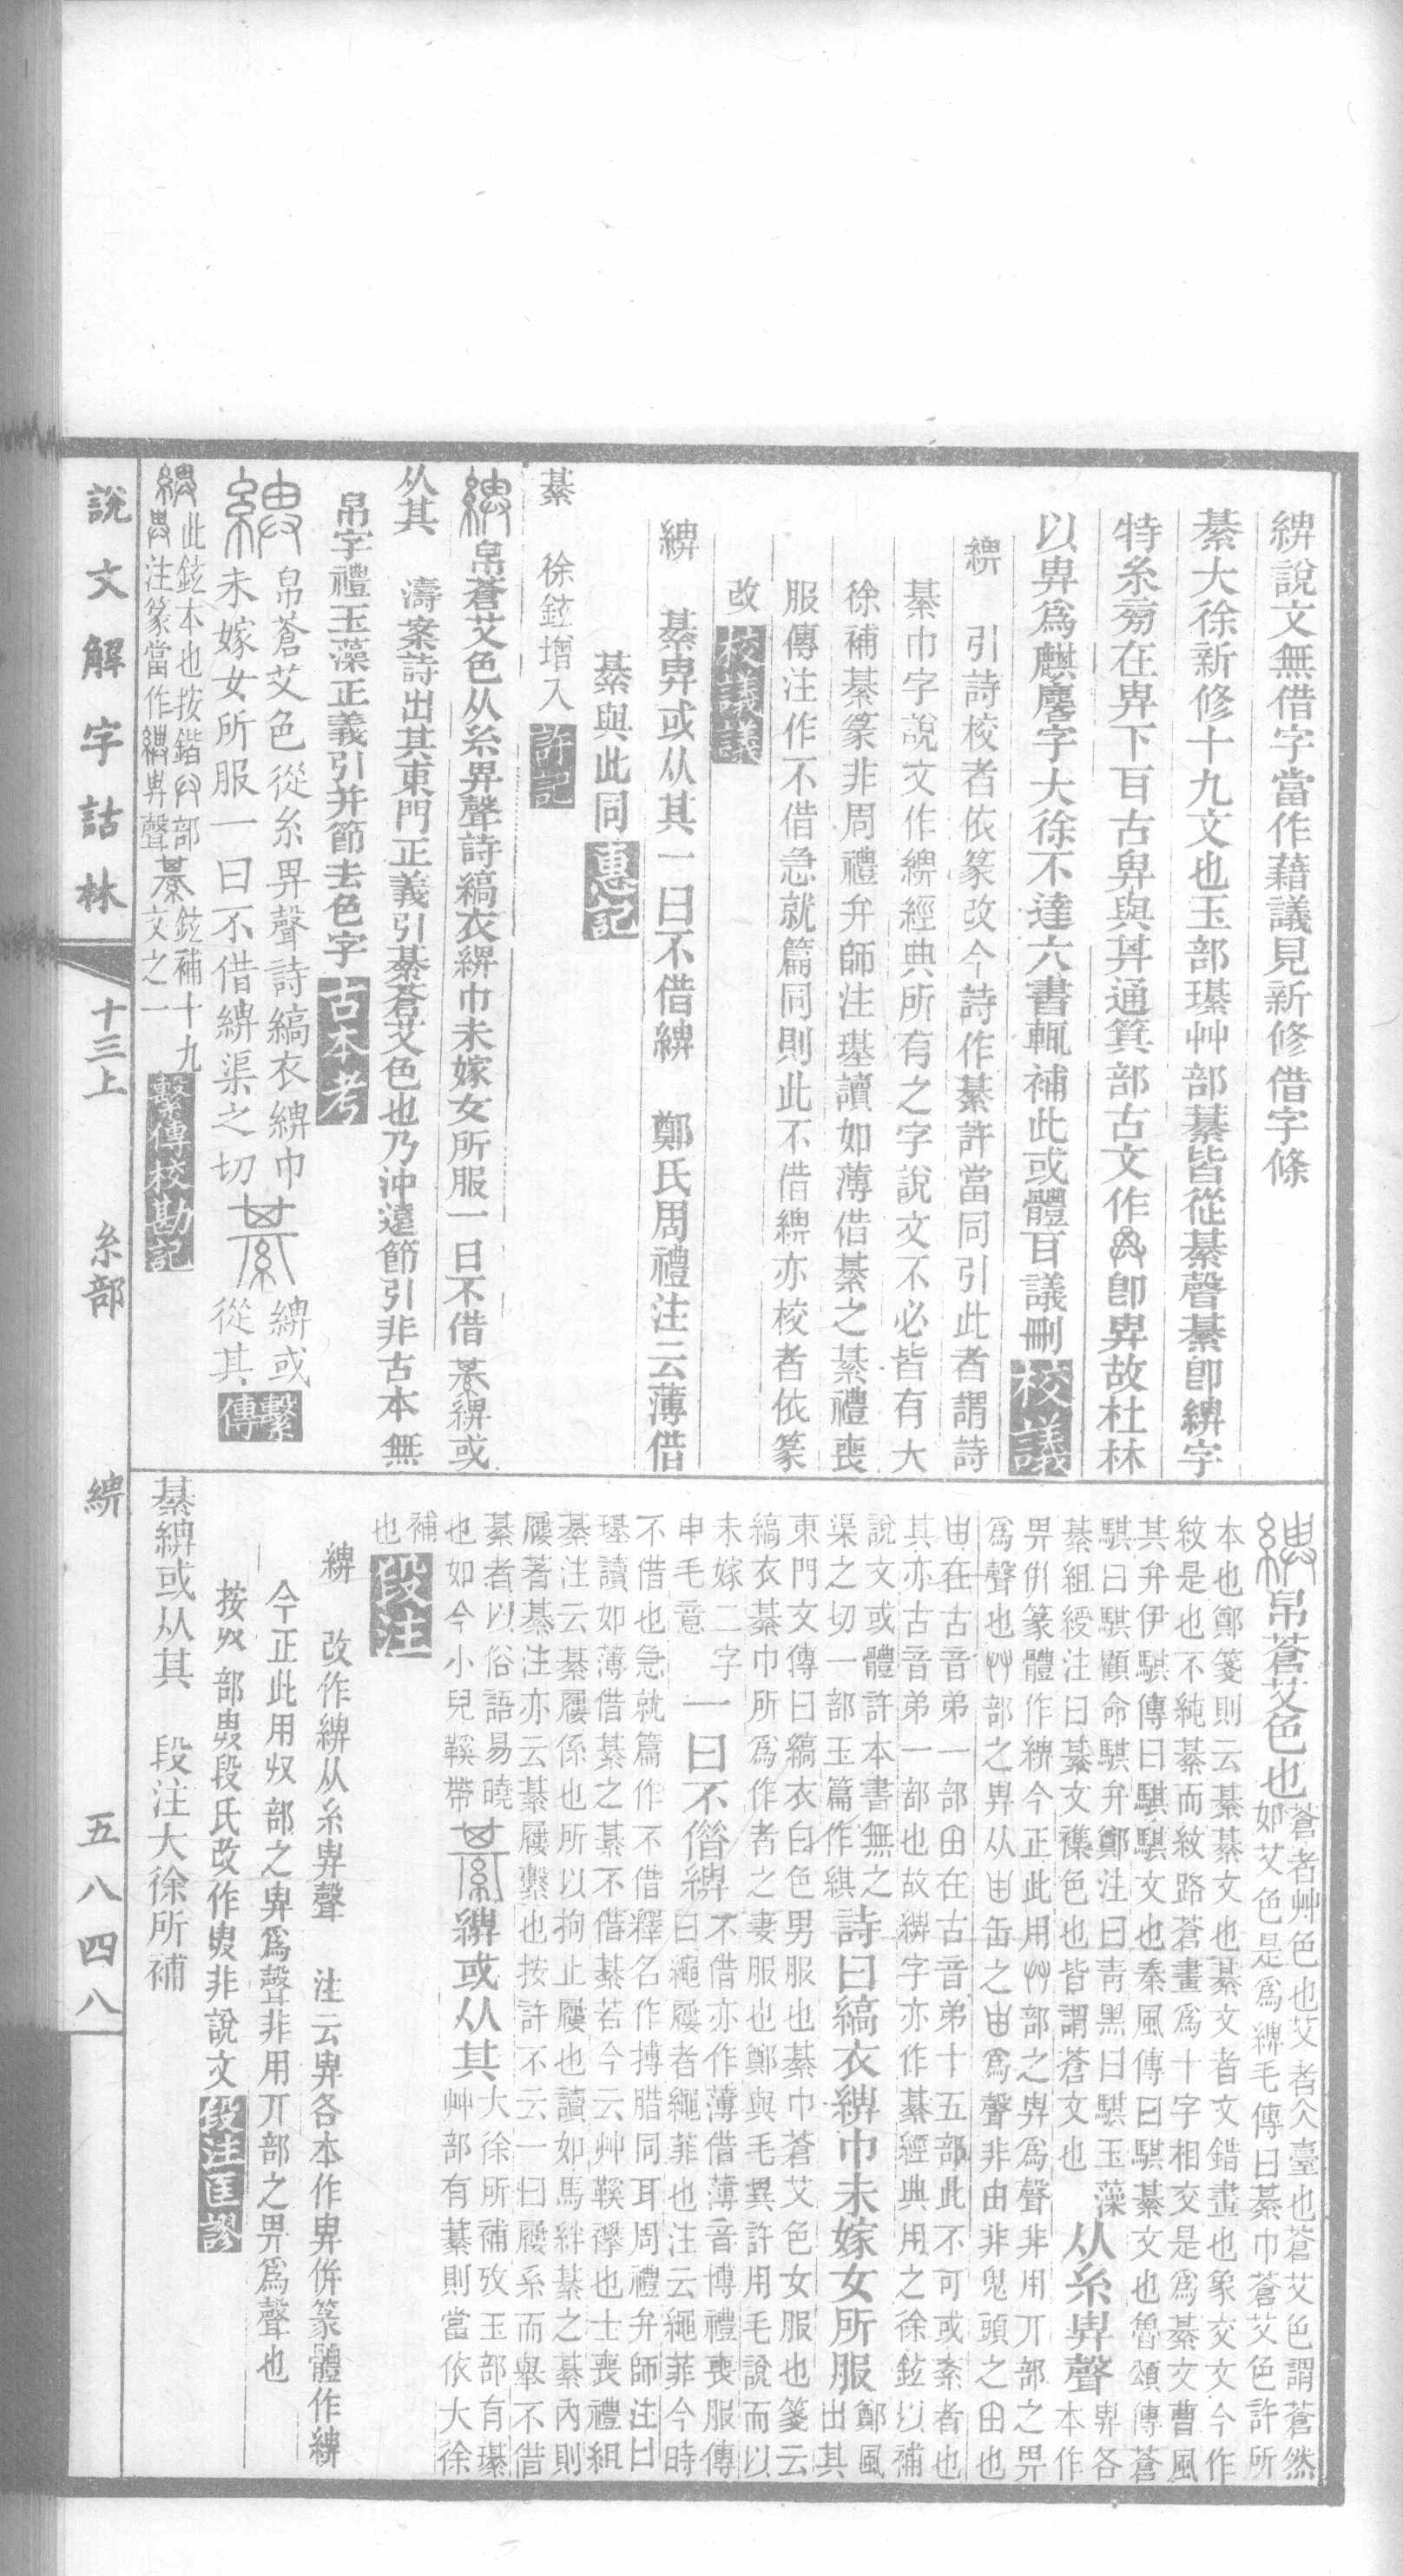 綥說文無借字當作藉議見新修借字條
綦大徐新修十九文也玉部璂艸部藄皆從綦聲綦卽綥字
特糸㫄在畁下耳古畁與其通箕部古文作卽畁故杜林
以畁爲麒麐字大徐不達六書輒補此或體耳議刪校議
綥　引詩校者依篆改今詩作綦許當同引此者謂詩
綦巾字說文作綥經典所有之字說文不必皆有大
徐補綦篆非周禮弁師注璂讀如薄借綦之綦禮喪
服傳注作不借急就篇同則此不借綥亦校者依篆
改校議議
綥　綦畁或从其一曰不借綥　鄭氏周禮注云薄借
綦與此同惠記
綦　徐鉉增入許記
綥帛蒼艾色从糸畀聲詩縞衣綥巾未嫁女所服一曰不借綦綥或
从其　濤案詩出其東門正義引綦蒼艾色也乃沖遠節引非古本無
帛字禮玉藻正義引并節去色字古本考
綥帛蒼艾色從糸畀聲詩縞衣綥巾
未嫁女所服一曰不借綥渠之切綦綥或
從其繫傳
綥此鉉本也按鍇部綦鉉補十九
注篆當作綥畁聲文之一繫傳校勘記
說文解字詁林　十三上　糸部　綥　五八四八
綥帛蒼艾色也蒼者艸色也艾者仌臺也蒼艾色謂蒼然
如艾色是爲綥毛傳曰綦巾蒼艾色許所
本也鄭箋則云綦綦文也綦文者文錯畫也象交文今作
紋是也不純綦而紋路蒼畫爲十字相交是爲綦文曹風
其弁伊騏傳曰騏騏文也秦風傳曰騏綦文也魯頌傳蒼
騏曰騏顧命騏弁鄭注曰青黑曰騏玉藻
綦組綬注曰綦文襍色也皆謂蒼文也从糸畀聲畀各
本作
畀倂篆體作綥今正此用部之畀爲聲非用丌部之畀
爲聲也部之畀从甶缶之甶爲聲非由非鬼頭之甶也
甶在古音弟一部甶在古音弟十五部此不可或紊者也
其亦古音弟一部也故綥字亦作綦經典用之徐鉉以補
說文或體許本書無之
渠之切一部玉篇作綨詩曰縞衣綥巾未嫁女所服鄭風
出其
東門文傳曰縞衣白色男服也綦巾蒼艾色女服也箋云
縞衣綦巾所爲作者之妻服也鄭與毛異許用毛說而以
未嫁二字
申毛意一曰不借綥不借亦作薄借薄音博禮喪服傳
曰繩屨者繩菲也注云繩菲今時
不借也急就篇作不借釋名作搏腊同耳周禮弁師注曰
璂讀如薄借綦之綦不借綦若今云艸鞵襻也士喪禮組
綦注云綦屨係也所以拘止屨也讀如馬絆綦之綦內則
屨著綦注亦云綦屨繫也按許不云一曰屨系而舉不借
綦者以俗語易曉
也如今小兒鞵帶綦綥或从其大徐所補攷玉部有璂
艸部有藄則當依大徐
補
也段注
綥　改作綥从糸畁聲　注云畁各本作畀倂篆體作綥
今正此用部之畁爲聲非用丌部之畀爲聲也
按部畁段氏改作畁非說文段注匡謬
綦綥或从其　段注大徐所補